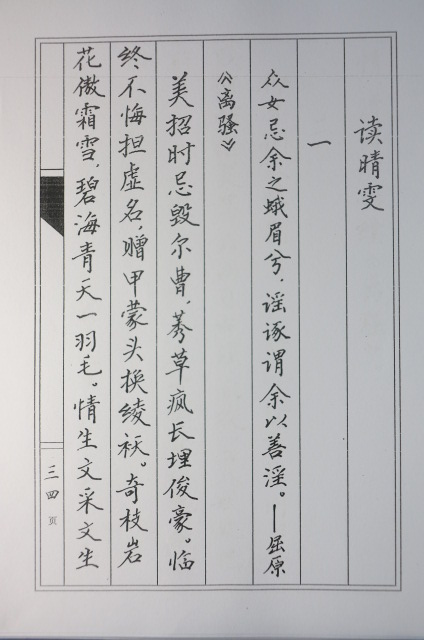 读晴雯
一
众女忌余之蛾眉兮，谣诼谓余以善淫。——屈原
《离骚》
美招时忌毁尔曹，莠草疯长埋俊豪。临
终不悔担虚名，赠甲蒙头换绫袄。奇枝岩
花傲霜雪，碧海青天一羽毛。情生文采文生
三四页